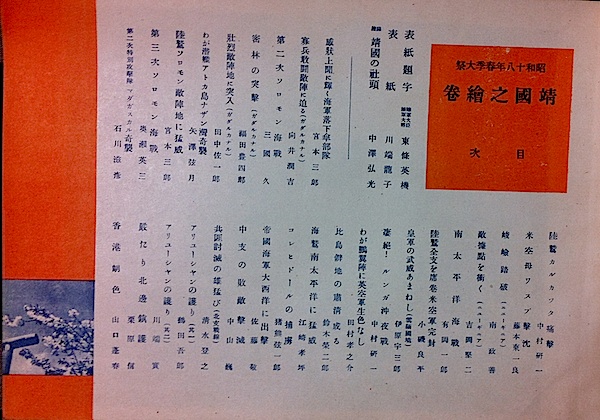 昭和十八年春季大祭
靖國之繪卷
目次
表紙題字 陸軍大臣 東條英機
表紙 川端龍子
靖國の社頭 中澤弘光
威狀上聞に輝く海軍落下傘部隊 宮本三郎
寡兵敢鬪敵陣に迫る(ガダルカナル) 向井潤吉
第二次ソロモン海戰 三國久
密林の突擊(ガダルカナル) 福田豊四郎
壯烈敵陣地に突入(ガダルカナル) 田中佐一郎
わが潜艦アトカ島ナザン灣奇襲 矢澤弦月
陸鷲ソロモン敵陣地に猛威 宮本三郎
第三次ソロモン海戰 奥瀬英三
第二次特別攻擊隊 マダガスカル奇襲 石川滋彦
陸鷲カルカツタ痛擊 中村研一
米空母ワスプ擊沈 藤本東一良
峻嶮踏破(ニューギニア) 南政善
敵據點を衝く(ニューギニア) 吉岡堅二
南太平洋海戰 有岡一郎
陸鷲全支を席卷米空軍完封 小磯良平
皇軍の武威あまねし 伊原宇三郎
凄絶!ルンガ沖夜戰 中村研一
わが鵬翼陣に英空軍生色なし 田村孝之介
比島僻地の肅清成る 鈴木榮二郎
海鷲南太平洋に猛威 江崎孝坪
コレヒドールの捕虜 猪熊弦一郎
帝國海軍大西洋に出擊 佐藤敬
中支の敗敵擊滅 中山巍
共匪討滅の雄猛び(北支戰線) 清水登之
アリューシャンの護り(其一) 鶴田吾郎
アリューシャンの護り(其二) 川端實
嚴たり北邊鎭護 栗原信
香港朝色 山口蓬春